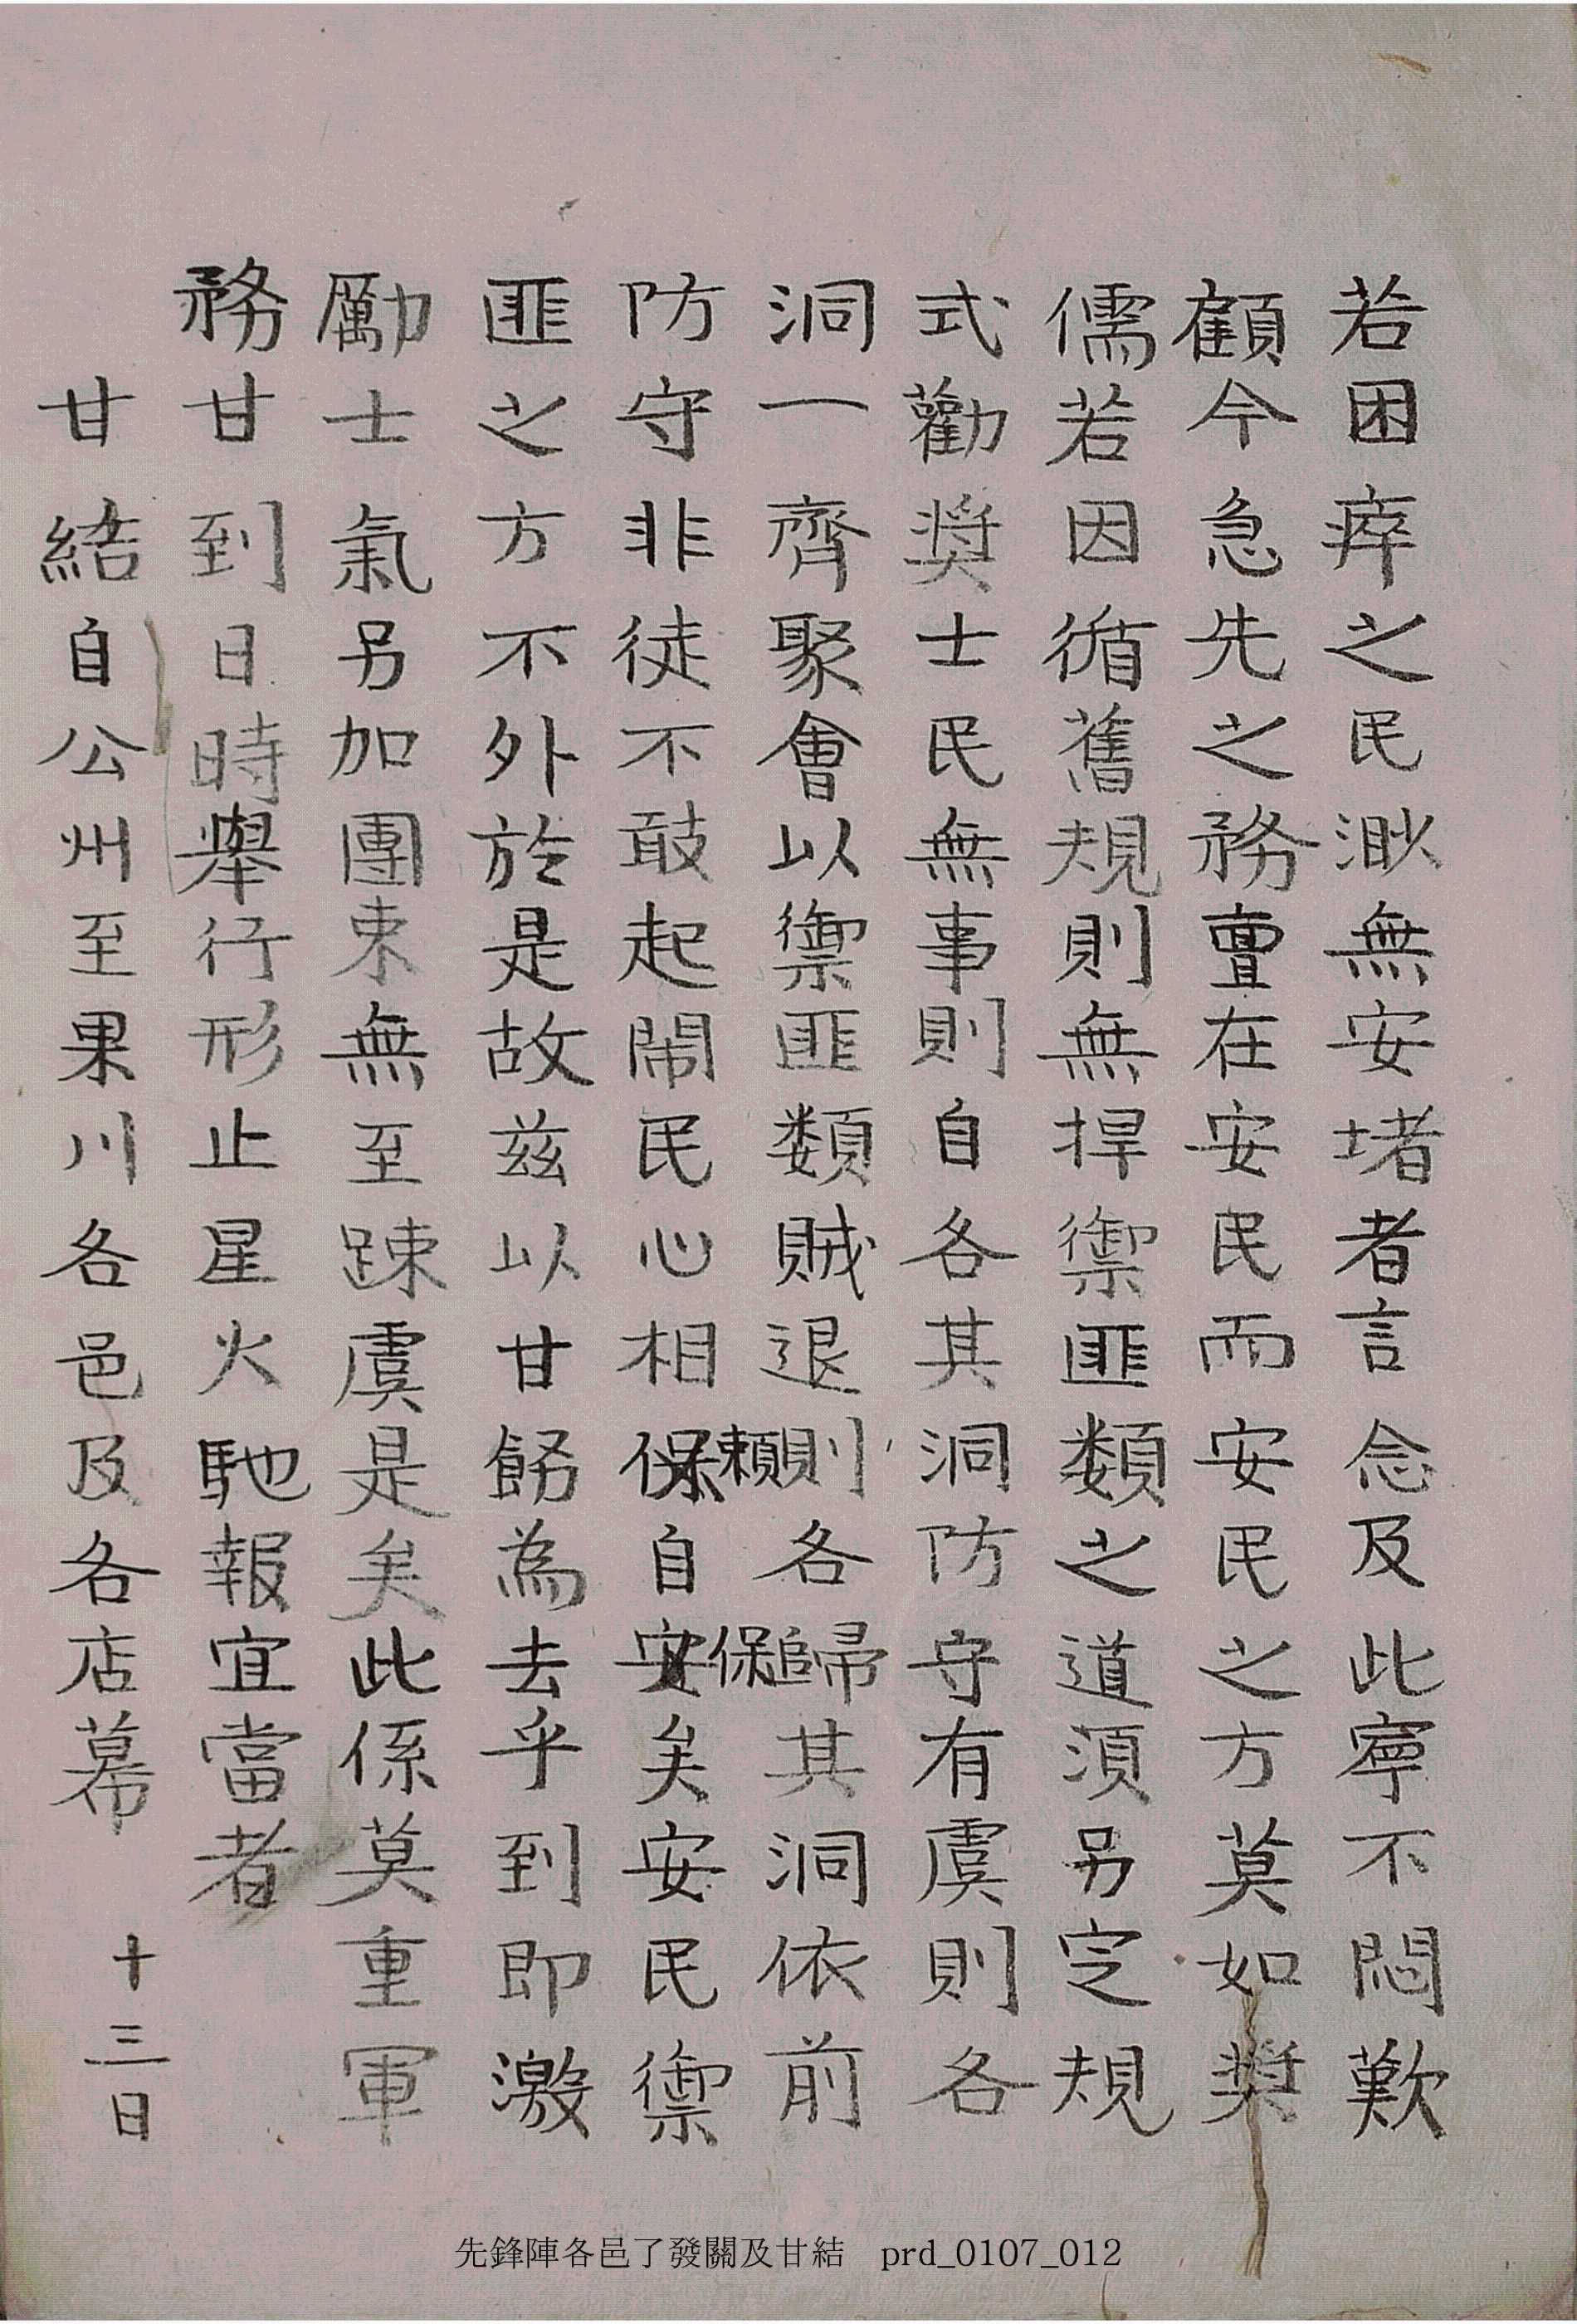 若困瘁之民渺無安堵者言念及此寧不悶歎
顧今急先之務亶在安民而安民之方莫如奬
儒若因循舊規則無捍禦匪類之道須另定規
式勸奬士民無事則自各其洞防守有虞則各
洞一齊聚會以禦匪類賊退則各歸其洞依前
防守非徒不敢起鬧民心相賴自保矣安民禦
匪之方不外於是故玆以甘飭為去乎到卽激
勵士氣另加團束無至踈虞是矣此係莫重軍
務甘到日時擧行形止星火馳報宜當者
甘結自公州至果川各邑及各店幕 十三日
先鋒陣各邑了發關及甘結 prd_0107_012